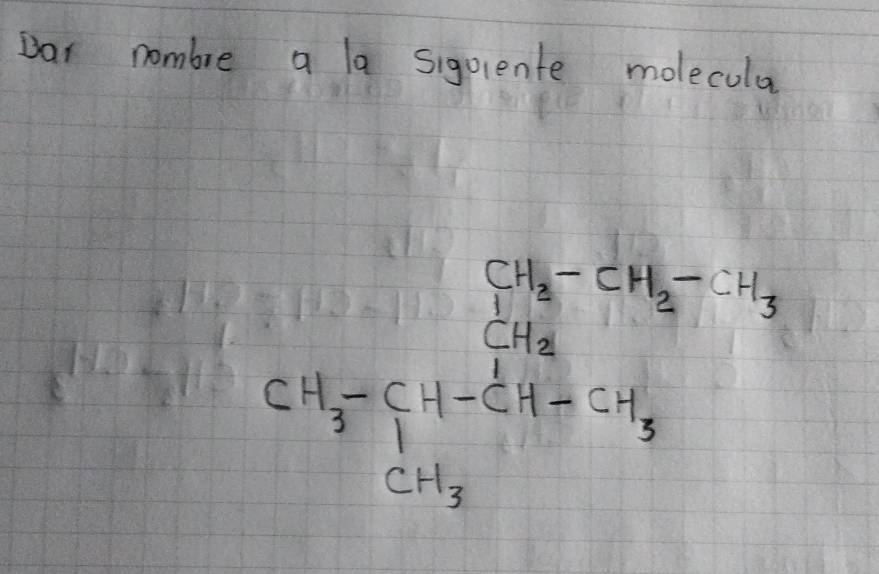 Dar nombre a la siguiente molecula
CH₂-CH₂-CH₃
CH₂
CH₃-CH-CH-CH₃
CH₃